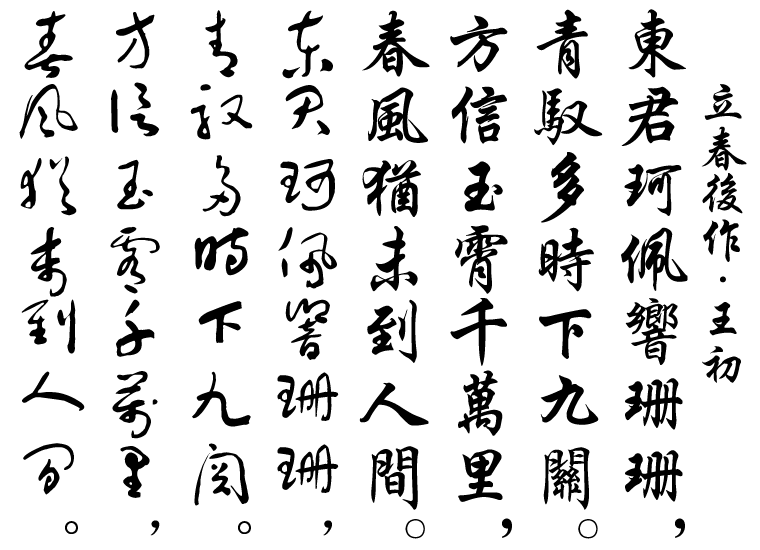 立春後作·王初
東君珂佩響珊珊，
青馭多時下九關○
方信玉霄千萬里，
春風猶未到人間○
东君珂佩响珊珊，
青驭多时下九关。
方信玉霄千万里，
春风犹未到人间。